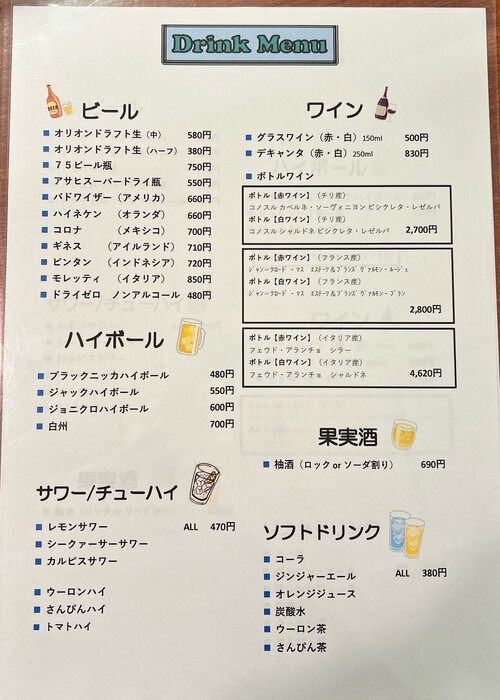 Drink Menu
ビール
オリオンドラフト生（中） 580円
オリオンドラフト生（ハーフ） 380円
７５ビール瓶 750円
アサヒスーパードライ瓶 550円
バドワイザー（アメリカ） 660円
ハイネケン （オランダ） 660円
コロナ （メキシコ） 700円
ギネス （アイルランド） 710円
ビンタン （インドネシア） 720円
モレッティ （イタリア） 850円
ドライゼロ ノンアルコール 480円
ハイボール
ブラックニッカハイボール 480円
ジャックハイボール 550円
ジョニクロハイボール 600円
白州 700円
サワー/チューハイ
レモンサワー ALL 470円
シークァーサーサワー
カルピスサワー
ウーロンハイ
さんぴんハイ
トマトハイ
ワイン
グラスワイン（赤・白）150ml 500円
デキャンタ（赤・白）250ml 830円
ボトルワイン
ボトル【赤ワイン】（チリ産）
コノスル カベルネ・ソーヴィニヨン ビシクレタ・レゼルバ
ボトル【白ワイン】（チリ産）
コノスル シャルドネ ビシクレタ・レゼルバ 2,700円
ボトル【赤ワイン】（フランス産）
ジャン＝クロード・マス エステーツ＆ブランズ ヴァルモン・ルージュ
ボトル【白ワイン】（フランス産）
ジャン＝クロード・マス エステーツ＆ブランズ ヴァルモン・ブラン
2,800円
ボトル【赤ワイン】（イタリア産）
フェウド・アランチョ シラー
ボトル【白ワイン】（イタリア産）
フェウド・アランチョ シャルドネ 4,620円
果実酒
柚酒（ロック or ソーダ割り） 690円
ソフトドリンク
コーラ
ジンジャーエール ALL 380円
オレンジジュース
炭酸水
ウーロン茶
さんぴん茶